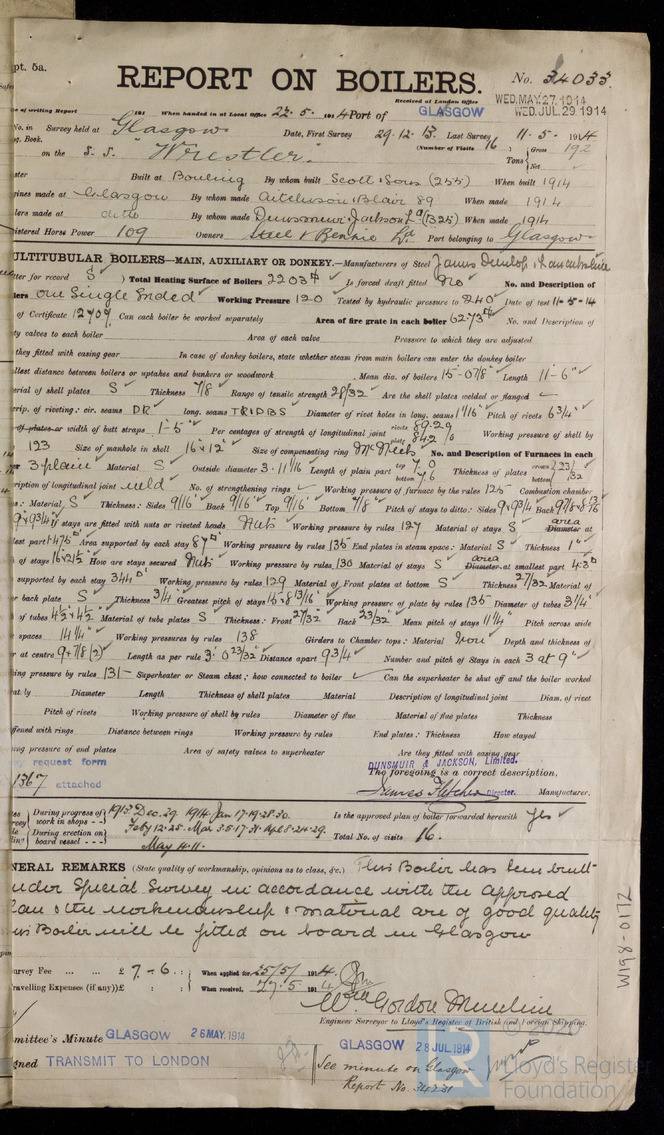 pt. 5a.
REPORT ON BOILERS.
No. 34033
Received at London Office
WED. MAY. 27. 1914
WED. JUL. 29. 1914
of writing Report 191 When handed in at Local Office 22.5.1914 Port of GLASGOW
No. in Survey held at Glasgow Date, First Survey 29.12.13 Last Survey 11.5.1914
Book. (Number of Visits 16) Gross 192
on the S.S. "Wrestler" Tons Net
Built at Bowling By whom built Scott & Sons (255) When built 1914
gines made at Glasgow By whom made Aitchison Blair 89 When made 1914
lers made at ditto By whom made Dunsmuir & Jackson Ld (B25) When made 1914
istered Horse Power 109 Owners Steel & Bennie Ld Port belonging to Glasgow
ULTITUBULAR BOILERS—MAIN, AUXILIARY OR DONKEY.—Manufacturers of Steel James Dunlop & Lanarkshire
tter for record S) Total Heating Surface of Boilers 2203 Is forced draft fitted No No. and Description of
lers One Single Ended Working Pressure 120 Tested by hydraulic pressure to 240 Date of test 11-5-14
of Certificate 12709 Can each boiler be worked separately Area of fire grate in each boiler 62.73 No. and Description of
ty valves to each boiler Area of each valve Pressure to which they are adjusted
they fitted with easing gear In case of donkey boilers, state whether steam from main boilers can enter the donkey boiler
llest distance between boilers or uptakes and bunkers or woodwork Mean dia. of boilers 15'-0 7/8" Length 11'-6"
erial of shell plates S Thickness 7/8 Range of tensile strength 28/32 Are the shell plates welded or flanged
crip. of riveting: cir. seams DR long. seams TRDBS Diameter of rivet holes in long. seams 1 1/16 Pitch of rivets 6 3/4"
of plates or width of butt straps 1-5" Per centages of strength of longitudinal joint rivets 89.29 plate 84.2% Working pressure of shell by
123 Size of manhole in shell 16"x12" Size of compensating ring McNeils No. and Description of Furnaces in each
3 plain Material S Outside diameter 3-11 1/16 Length of plain part top 7.0 bottom 7.6 Thickness of plates crown 23/32 bottom
ription of longitudinal joint weld No. of strengthening rings Working pressure of furnace by the rules 125 Combustion chamber
s: Material S Thickness: Sides 9/16 Back 9/16 Top 9/16 Bottom 7/8 Pitch of stays to ditto: Sides 9x9 3/4 Back 9 7/8 x 8 13/16
9x9 3/4 If stays are fitted with nuts or riveted heads Nuts Working pressure by rules 127 Material of stays S area Diameter at
lest part 1.476 Area supported by each stay 87 Working pressure by rules 135 End plates in steam space: Material S Thickness 1"
of stays 16x21 1/2 How are stays secured Nuts Working pressure by rules 130 Material of stays S area Diameter at smallest part 4.3
supported by each stay 344 Working pressure by rules 129 Material of Front plates at bottom S Thickness 27/32 Material of
r back plate S Thickness 3/4 Greatest pitch of stays 15x8 13/16 Working pressure of plate by rules 135 Diameter of tubes 3 1/4"
of tubes 4 1/2 x 4 1/2 Material of tube plates S Thickness: Front 27/32 Back 23/32 Mean pitch of stays 11 1/4" Pitch across wide
spaces 14 1/4" Working pressures by rules 138 Girders to Chamber tops: Material Iron Depth and thickness of
r at centre 9x7/8 (2) Length as per rule 3'-0 23/32 Distance apart 9 3/4 Number and pitch of Stays in each 3 at 9"
king pressure by rules 131 Superheater or Steam chest; how connected to boiler Can the superheater be shut off and the boiler worked
ately Diameter Length Thickness of shell plates Material Description of longitudinal joint Diam. of rivet
Pitch of rivets Working pressure of shell by rules Diameter of flue Material of flue plates Thickness
ffened with rings Distance between rings Working pressure by rules End plates: Thickness How stayed
ing pressure of end plates Area of safety valves to superheater Are they fitted with easing gear
y request form
1367 attached
DUNSMUIR & JACKSON, Limited.
The foregoing is a correct description,
James Fletcher Director. Manufacturer.
During progress of work in shops - - 1913 Dec. 29. 1914 Jan 17.19.28.30.
Feby 12.25. Mar 3.5.17.31. Apl 8.24.29.
During erection on board vessel - - - May 4.11.
Is the approved plan of boiler forwarded herewith yes
Total No. of visits 16.
NERAL REMARKS (State quality of workmanship, opinions as to class, &c.) This Boiler has been built
under Special Survey in accordance with the approved
plan & the workmanship & material are of good quality
This Boiler will be fitted on board in Glasgow
urvey Fee ... ... £ 7-6 : When applied for, 25/5/1914.
ravelling Expenses (if any) £ : : When received, 27.5.191
Wm Gordon
Engineer Surveyor to Lloyd's Register of British and Foreign Shipping.
mmittee's Minute GLASGOW 26 MAY. 1914
gned TRANSMIT TO LONDON
GLASGOW 28 JUL. 1914
See minute on Glasgow
Report No. 34231
W198-0172
© 2020
Lloyd's Register
Foundation